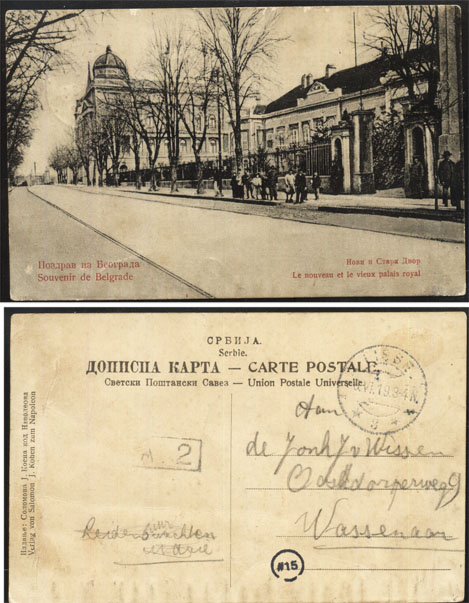 Поздрав из Београда
Souvenir de Belgrade
Нови и Стари Двор
Le nouveau et le vieux palais royal
СРБИЈА.
Serbie.
ДОПИСНА КАРТА — CARTE POSTALE
Светски Поштански Савез — Union Postale Universelle.
Издање: Саломона Ј. Коена код Наполеона
Verlag von Salomon J. Kohen zum Napoleon
LISSE
2
Aan
de Jonkh v Wissen
Oostdorperweg 9
Wassenaar
#15